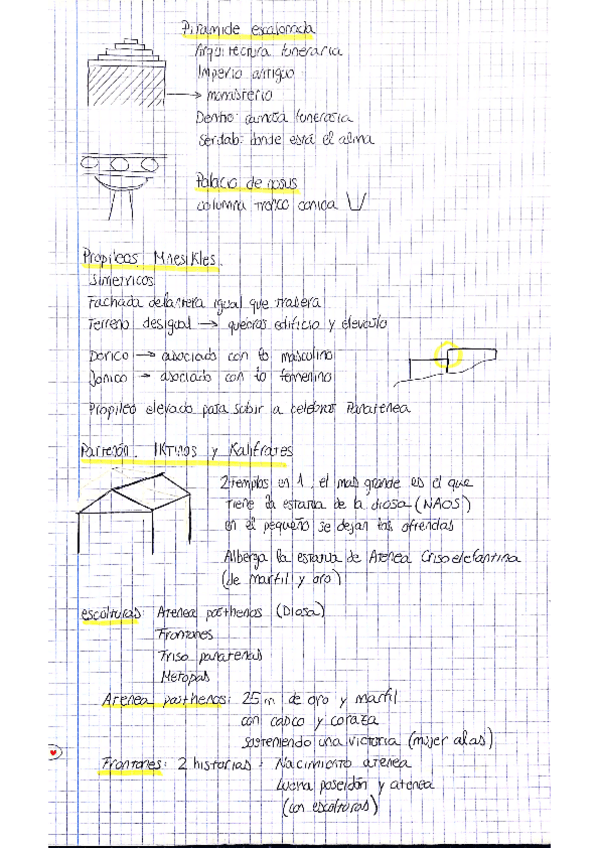 Piramide escalonada
Arquitectura funeraria
Imperio antiguo
→ monasterio
Dentro: camara funeraria
Serdab: donde está el alma
Palacio de
columna tronco conica
Propileos, Mnesikles.
Simetricos
Fachada delantera igual que trasera
Terreno desigual → edificio y elevarlo
Dorico → asociado con lo masculino
Jonico → asociado con lo femenino
Propileo elevado para subir a celebrar Panatenea
Partenón. Iktinos y Kalikrates
2 templos en 1, el mas grande es el que
tiene la estatua de la diosa (NAOS)
en el pequeño se dejan las ofrendas
Alberga la estatua de Atenea Crisoelefantina
(de marfil y oro)
escolturas: Atenea parthenos (Diosa)
Frontones
Friso panateneas
Metopas
Atenea parthenos: 25 m de oro y marfil
con casco y coraza
sosteniendo una victoria (mujer alas)
Frontones: 2 historias: Nacimiento atenea
Lucha poseidón y atenea
(con escolturas)